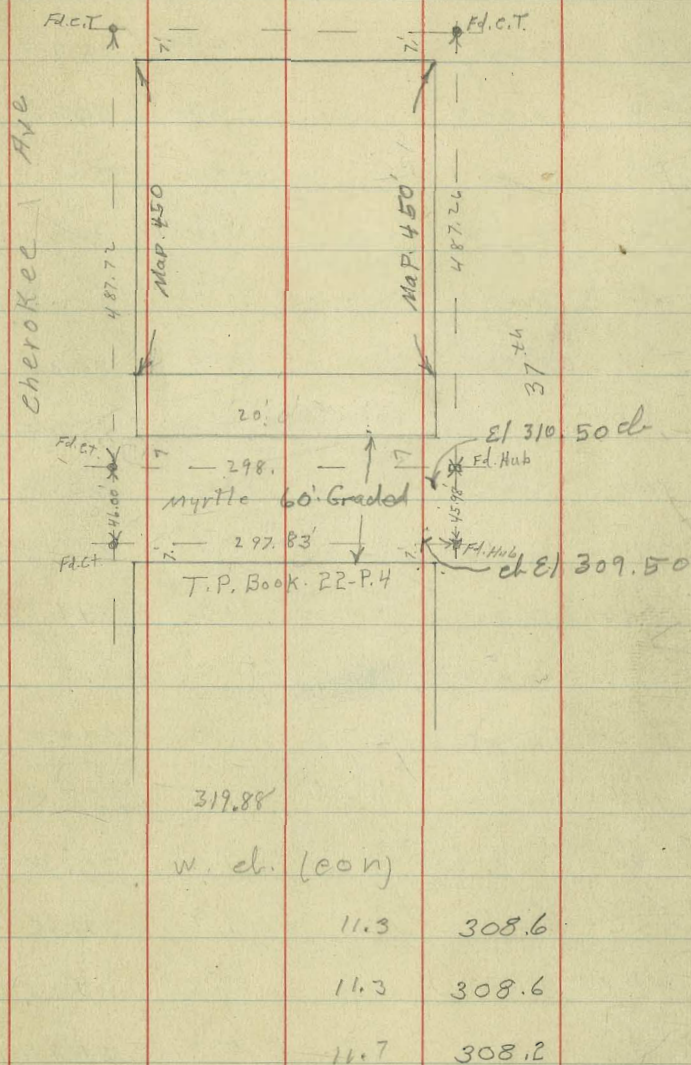 Fd.C.T
Fd.C.T.
7'.
7'.
Cherokee Ave
487.72
Map.450
Map.450'
487.26
37th
20'
El 310.50 cb
Fd.Ct.
7
298.
7
Fd.Hub
46.00'
Myrtle 60' Graded
45.98'
Fd.Ct
7.
297.83'
7.
Fd.Hub
cb El 309.50
T.P. Book. 22-P.4
319.88
w. cb. (con)
11.3 308.6
11.3 308.6
11.7 308.2